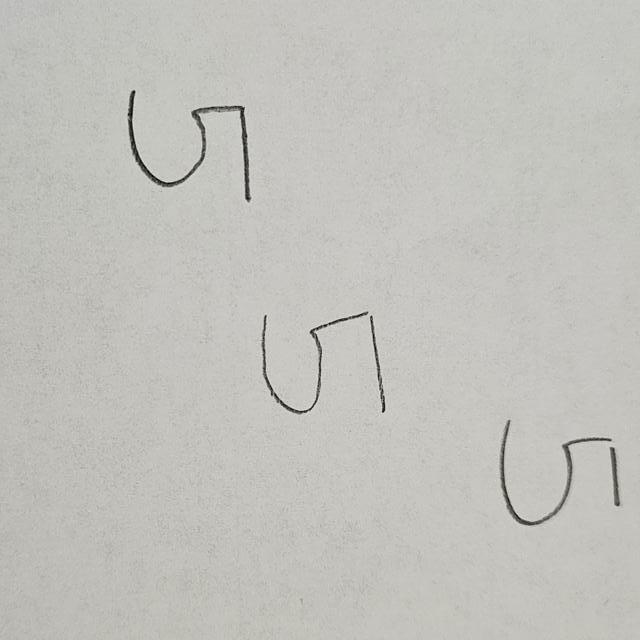 5
5
5